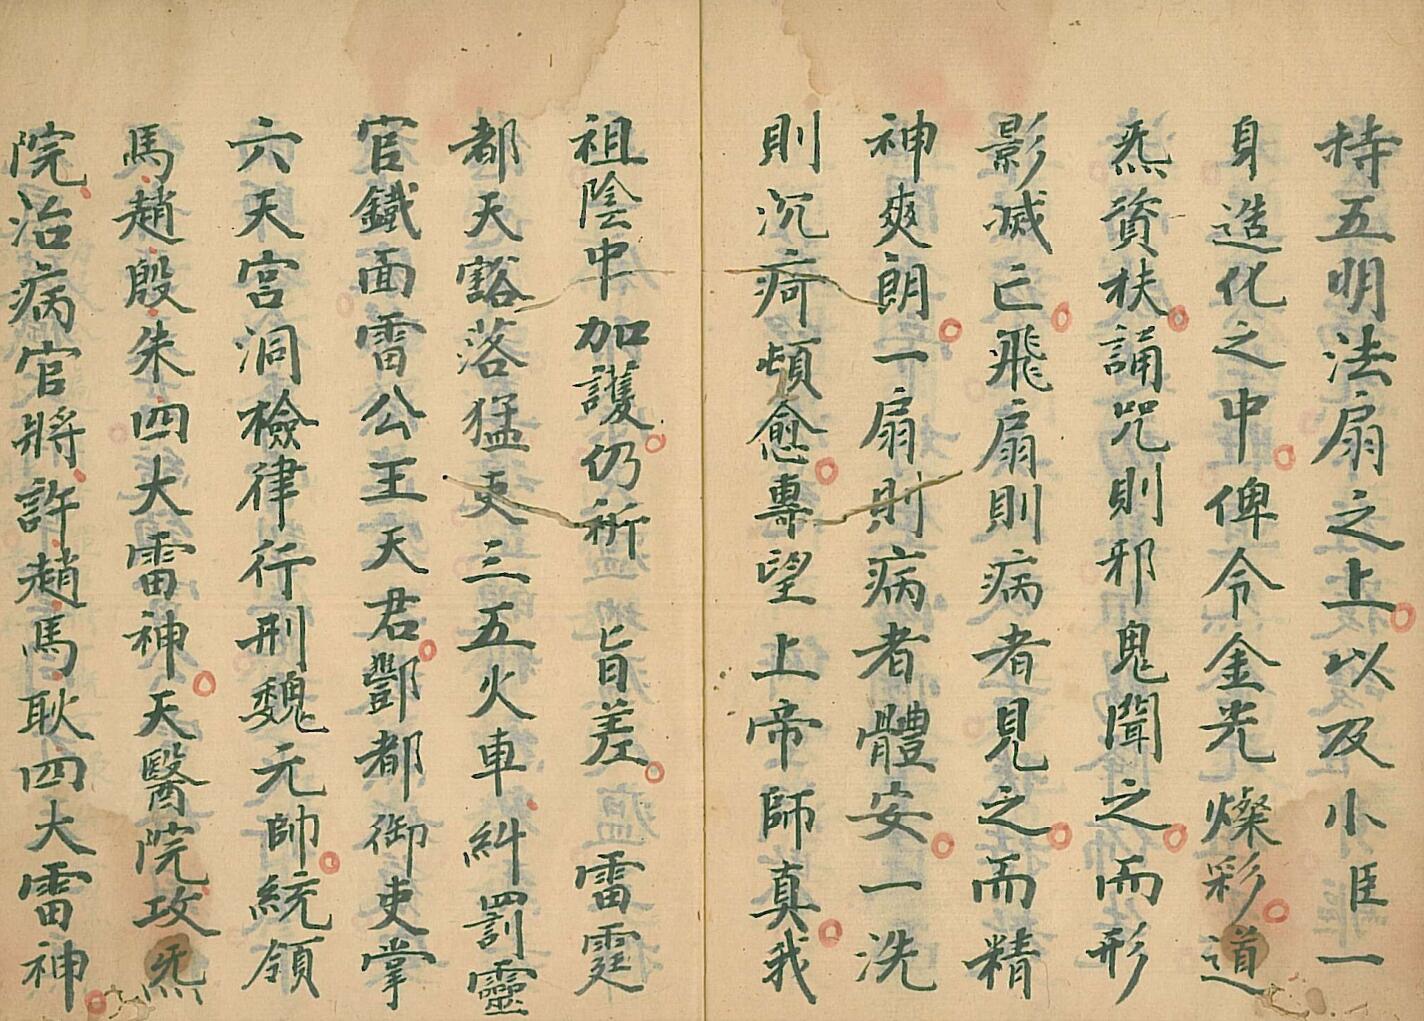 持五明法扇之上以及小臣一
身造化之中俾令金光燦彩道
炁資扶誦咒則邪鬼聞之而形
影滅亡飛扇則病者見之而精
神爽朗一扇則病者體安一洗
則沉疴頓愈專望上帝師真我
祖陰中加護仍祈 旨差 雷霆
都天豁落猛吏三五火車糾罰靈
官鐵面雷公王天君酆都御史掌
六天宮洞檢律行刑魏元帥統領
馬趙殷朱四大雷神天醫院攻炁
院治病官將許趙馬耿四大雷神